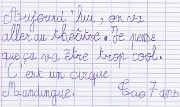 Aujourd'hui, on va
aller au théâtre. Je pense
que ça va être trop cool.
C'est un cirque
Mandingue. Tao 7 ans